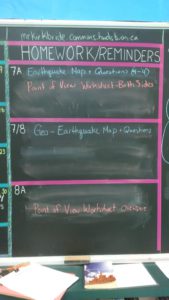 mrkirkbride.commons.hwdsb.on.ca
HOMEWORK/REMINDERS
7A Earthquake Map + Questions (1-4)
Point of View Worksheet-Both Sides
7/8 Geo - Earthquake Map + Questions
8A
Point of View Worksheet